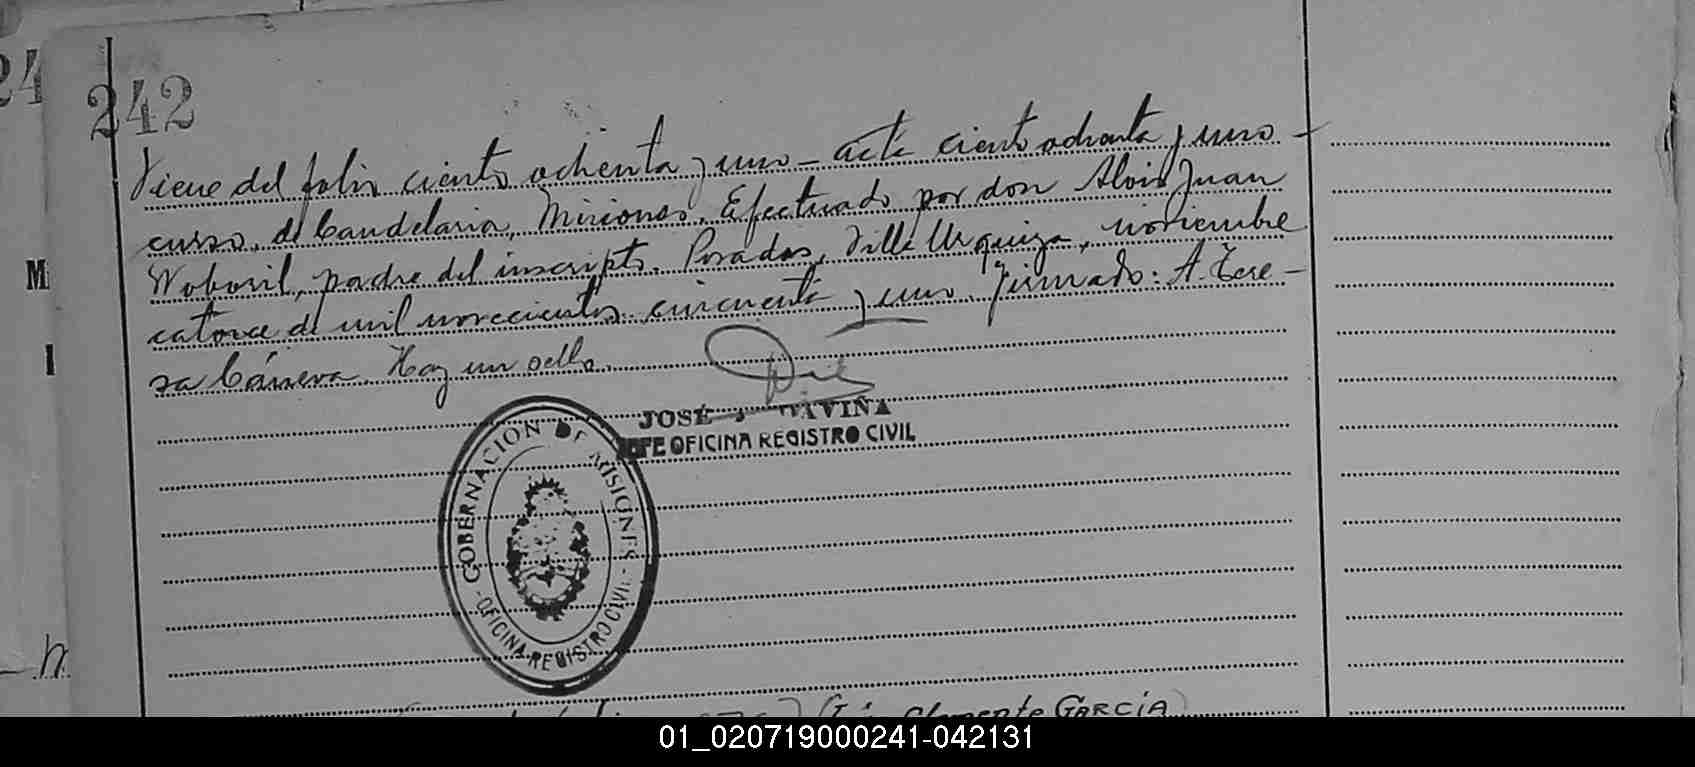 24
242
Viene del folio ciento ochenta y uno - acta ciento ochenta y uno -
curso, de Candelaria, Misiones. Efectuado por don Alois Juan
Woboril, padre del inscripto. Posadas, Villa Urquiza, noviembre
catorce de mil novecientos cincuenta y uno. Firmado: A. Tere-
sa Cáneva. Hay un sello.
JOSÉ DAVIÑA
JEFE OFICINA REGISTRO CIVIL
GOBERNACION DE MISIONES
- OFICINA REGISTRO CIVIL -
M
I
Clemente GARCÍA
01_020719000241-042131